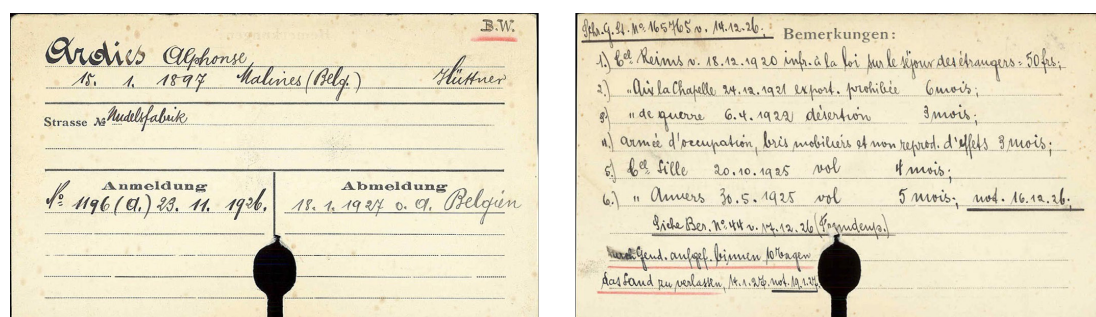 B.W.
Ardies Alphonse
15. 1. 1897 Malines (Belg.) Hüttner
Strasse № Nudelsfabrik
Anmeldung Abmeldung
No 1196 (d.) 23. 11. 1926. 18. 1. 1927 o. A. Belgien
Schr. G. St. No 165765 v. 14.12.26. Bemerkungen:
1.) Cel Reims v. 18.12.1920 infr. à la loi sur le séjour des étrangers = 50 frs;
2.) " Aix la Chapelle 24.12.1921 export. prohibée 6 mois;
3.) " de guerre 6.4.1922 désertion 3 mois;
4.) armée d'occupation, bris mobiliers et non reprod. d'effets 3 mois;
5.) Cel Lille 20.10.1925 vol 4 mois;
6.) " Anvers 30.5.1925 vol 5 mois; not. 16.12.26.
Siehe Ber. No 44 v. 17.12.26 (Fremdenp.)
Gend. aufgef. binnen 10 Tagen
das Land zu verlassen, 14.1.27. not. 19.1.27.